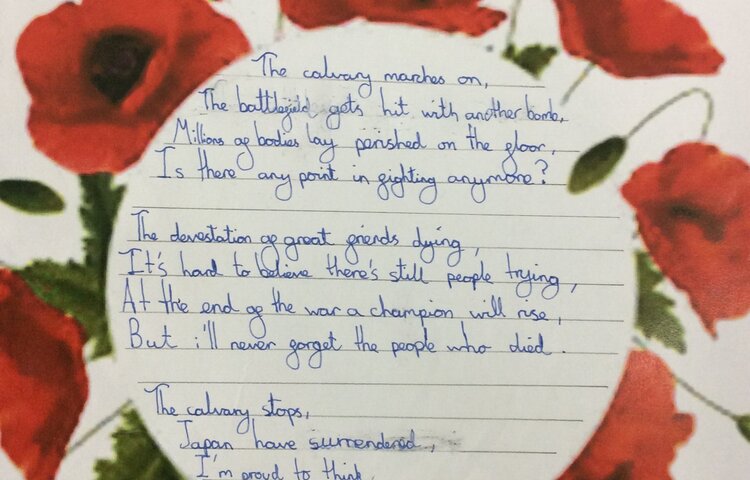 The calvary marches on,
The battlefield gets hit with another bomb,
Millions of bodies lay perished on the floor,
Is there any point in fighting anymore?
The devestation of great friends dying,
It's hard to believe there's still people trying,
At the end of the war a champion will rise,
But i'll never forget the people who died.
The calvary stops,
Japan have surrendered,
I'm proud to think,